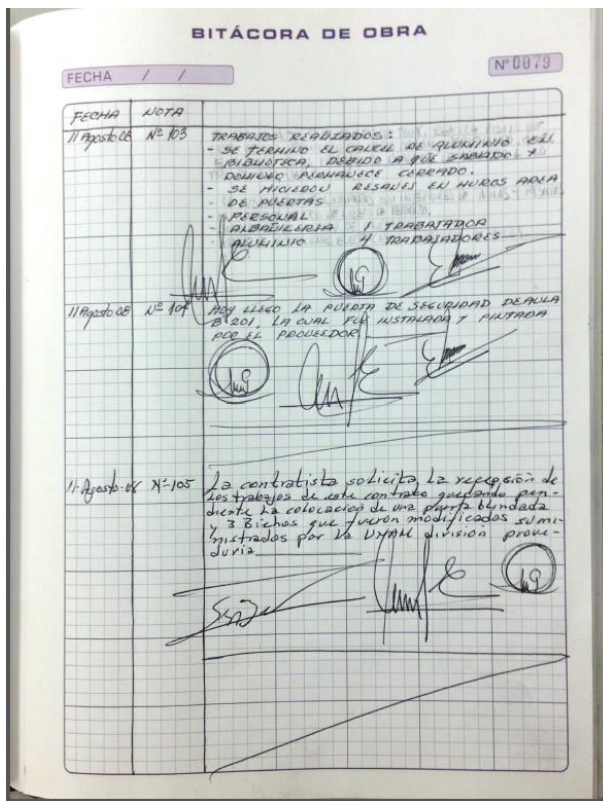 BITÁCORA DE OBRA
FECHA / /
Nº 0079
FECHA NOTA
11 Agosto 08 Nº 103 TRABAJOS REALIZADOS:
- SE TERMINO EL CANCEL DE ALUMINIO EN
BIBLIOTECA, DEBIDO A QUE SABADO Y
DOMINGO PERMANECE CERRADO.
- SE HICIERON RESANES EN MUROS AREA
- DE PUERTAS
- PERSONAL
- ALBAÑILERIA 1 TRABAJADOR
- ALUMINIO 4 TRABAJADORES
11 Agosto 08 Nº 104 HOY LLEGO LA PUERTA DE SEGURIDAD DE AULA
B 201, LA CUAL FUE INSTALADA Y PINTADA
POR EL PROVEEDOR
11-Agosto-08 Nº-105 La contratista solicita, La recepsión de
Los trabajos de este contrato quedando pen-
diente La colocacion de una puerta blindada
y 3 Bichos que fueron modificados sumi-
nistrados por La UNAM división provee-
duria